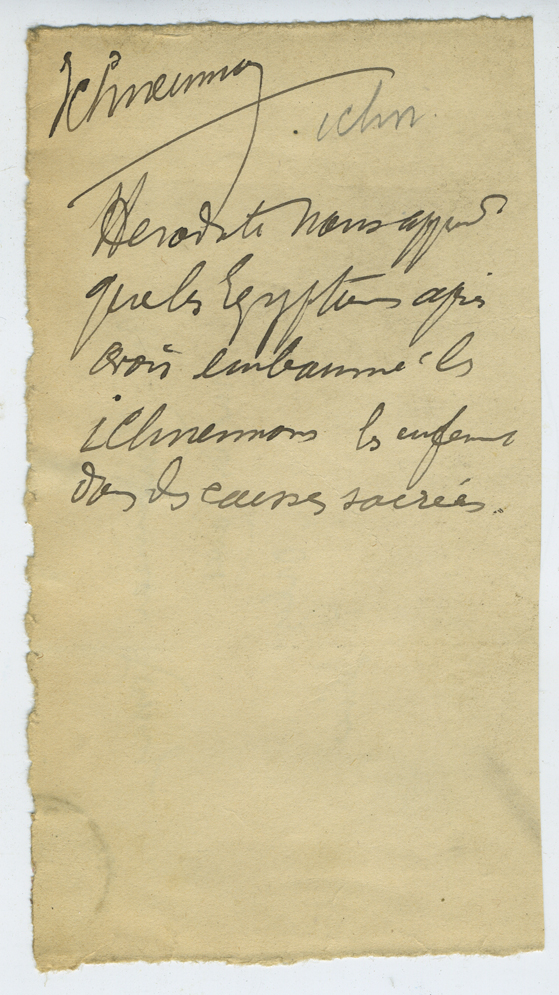 Ichneumon
ichn.
Herodote nous apprend
que les Egyptiens après
avoir embaumé les
ichneumons les enferment
dans des caisses sacrées.